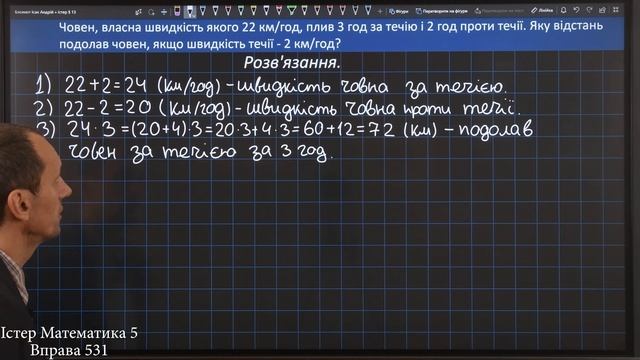 Човен, власна швидкість якого 22 км/год, плив 3 год за течію і 2 год проти течії. Яку відстань
подолав човен, якщо швидкість течії - 2 км/год?
Розв'язання.
1) 22+2=24 (км/год) – швидкість човна за течією.
2) 22-2=20 (км/год) – швидкість човна проти течії.
3) 24·3=(20+4)·3=20·3+4·3=60+12=72 (км) – подолав
човен за течією за 3 год.
Істер Математика 5
Вправа 531